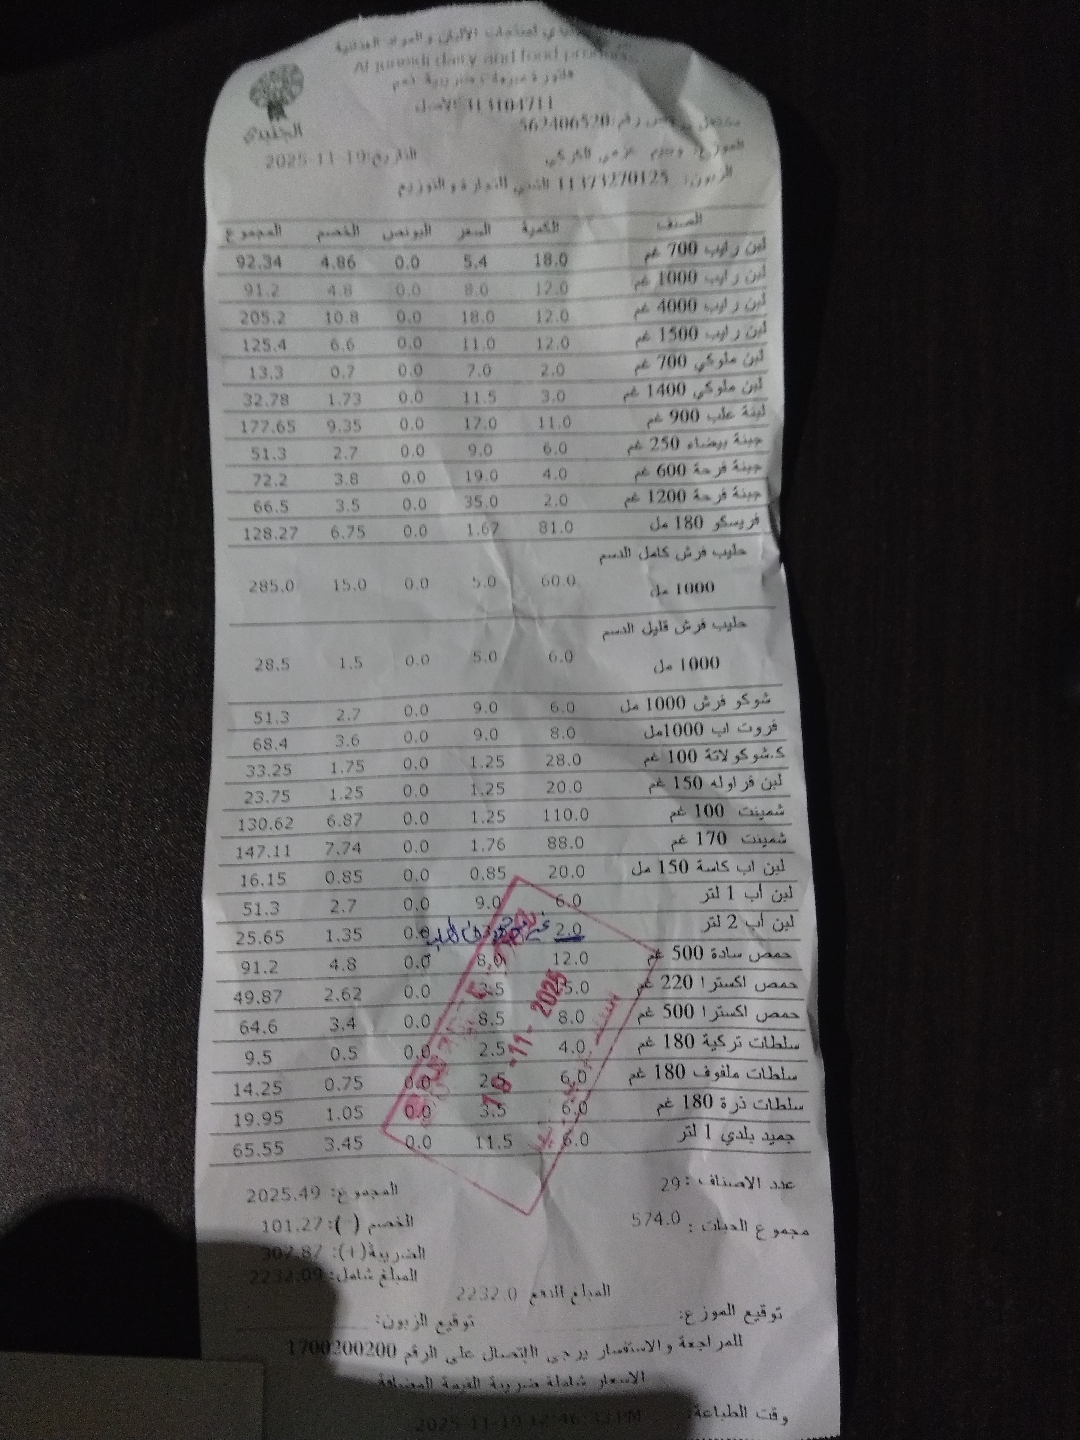 لمنتجات الألبان والمواد الغذائية
Al juneidi dairy and food products
الجنيدي
313104711
مشتغل مرخص رقم: 562406520
الموزع: وسيم عزمي الكركي التاريخ: 2025-11-19
الزبون: 11373270125 للتجارة والتوزيع
الصنف الكمية السعر البونص الخصم المجموع
لبن رايب 700 غم 18.0 5.4 0.0 4.86 92.34
لبن رايب 1000 غم 12.0 8.0 0.0 4.8 91.2
لبن رايب 4000 غم 12.0 18.0 0.0 10.8 205.2
لبن رايب 1500 غم 12.0 11.0 0.0 6.6 125.4
لبن ملوكي 700 غم 2.0 7.0 0.0 0.7 13.3
لبن ملوكي 1400 غم 3.0 11.5 0.0 1.73 32.78
لبنة علب 900 غم 11.0 17.0 0.0 9.35 177.65
جبنة بيضاء 250 غم 6.0 9.0 0.0 2.7 51.3
جبنة فرحة 600 غم 4.0 19.0 0.0 3.8 72.2
جبنة فرحة 1200 غم 2.0 35.0 0.0 3.5 66.5
فريسكو 180 مل 81.0 1.67 0.0 6.75 128.27
حليب فرش كامل الدسم
1000 مل 60.0 5.0 0.0 15.0 285.0
حليب فرش قليل الدسم
1000 مل 6.0 5.0 0.0 1.5 28.5
شوكو فرش 1000 مل 6.0 9.0 0.0 2.7 51.3
فروت اب 1000مل 8.0 9.0 0.0 3.6 68.4
ك.شوكولاتة 100 غم 28.0 1.25 0.0 1.75 33.25
لبن فراوله 150 غم 20.0 1.25 0.0 1.25 23.75
شمينت 100 غم 110.0 1.25 0.0 6.87 130.62
شمينت 170 غم 88.0 1.76 0.0 7.74 147.11
لبن اب كاسة 150 مل 20.0 0.85 0.0 0.85 16.15
لبن اب 1 لتر 6.0 9.0 0.0 2.7 51.3
لبن اب 2 لتر 2.0 0.0 1.35 25.65
حمص سادة 500 غم 12.0 8.0 0.0 4.8 91.2
حمص اكسترا 220 غم 3.5 0.0 2.62 49.87
حمص اكسترا 500 غم 8.0 8.5 0.0 3.4 64.6
سلطات تركية 180 غم 4.0 2.5 0.0 0.5 9.5
سلطات ملفوف 180 غم 6.0 2.5 0.0 0.75 14.25
سلطات ذرة 180 غم 6.0 3.5 0.0 1.05 19.95
جميد بلدي 1 لتر 6.0 11.5 0.0 3.45 65.55
19 -11- 2025
عدد الاصناف: 29 المجموع: 2025.49
مجموع الحبات: 574.0 الخصم (-): 101.27
الضريبة(+): 307.87
المبلغ شامل: 2232.09
المبلغ للدفع 2232.0
توقيع الموزع: توقيع الزبون:
للمراجعة والاستفسار يرجى الاتصال على الرقم 1700200200
الاسعار شاملة ضريبة القيمة المضافة
وقت الطباعة: 2025-11-19 12:46:33 PM